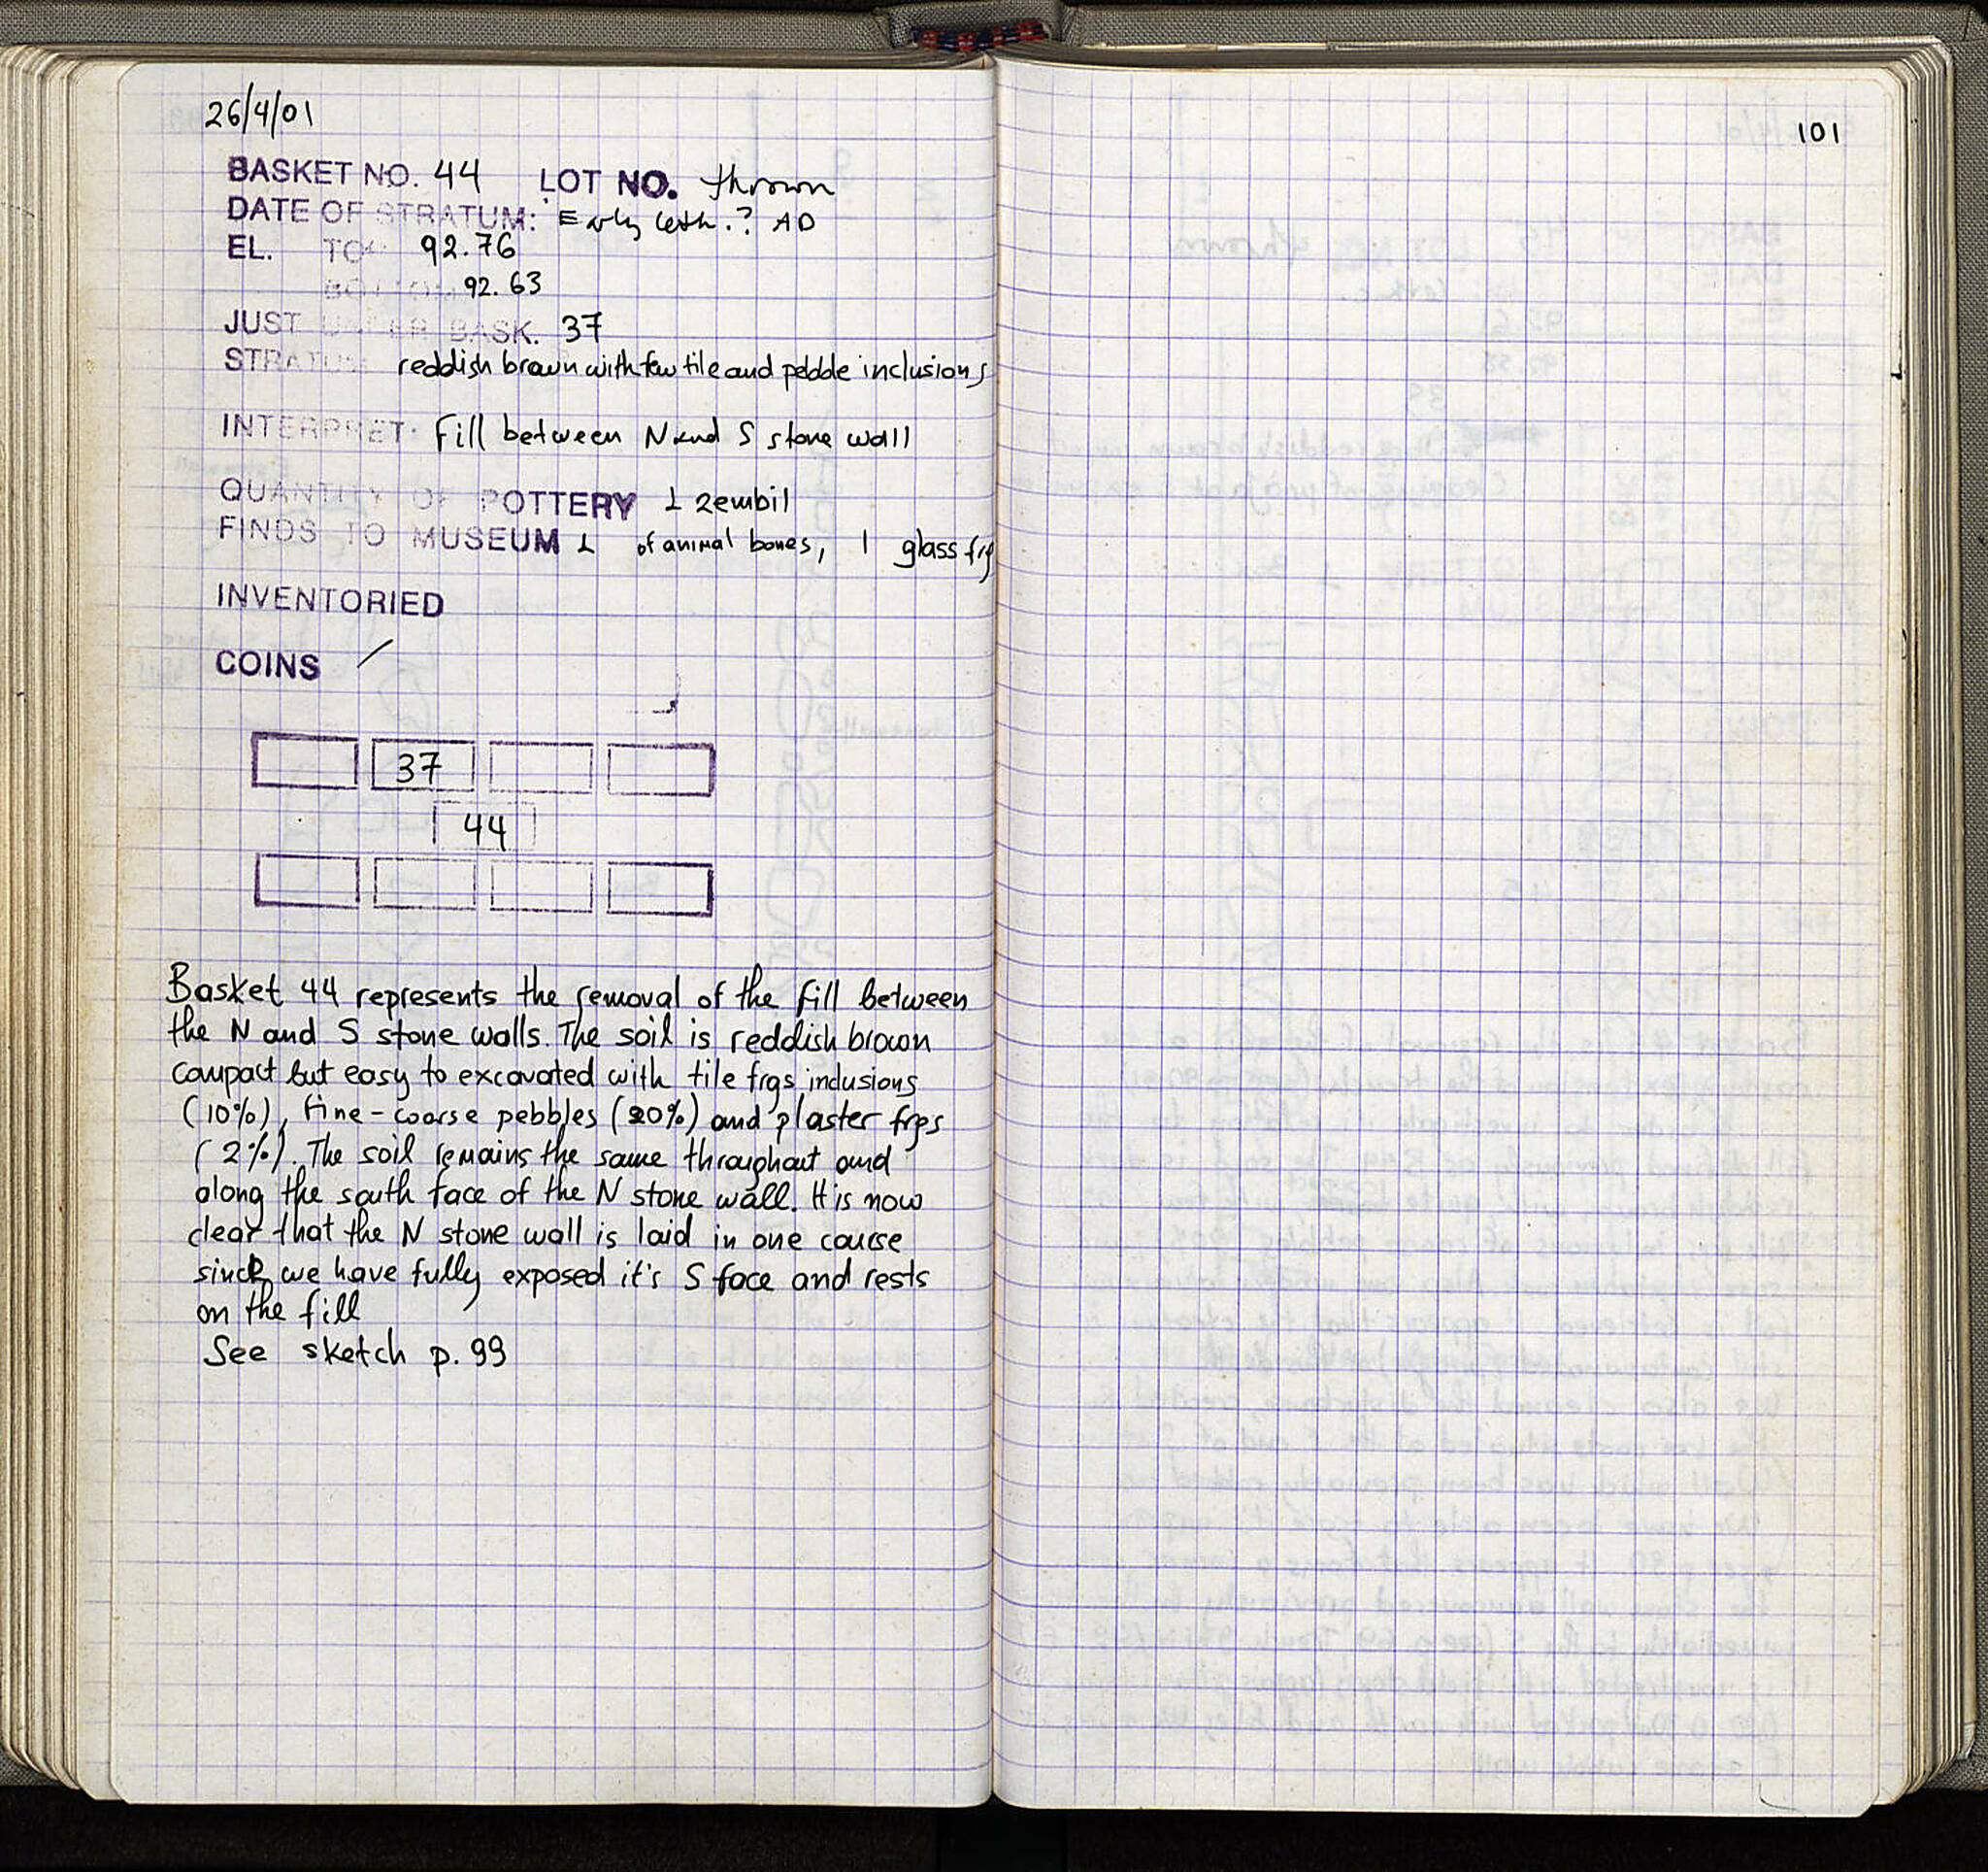 26/4/01
BASKET NO. 44 LOT NO. thrown
DATE OF STRATUM: Early ? AD
EL. TOP 92.76
BOTTOM 92.63
JUST UNDER BASK. 37
STRATUM reddish brown with few tile and pebble inclusions
INTERPRET: Fill between N and S stone wall
QUANTITY OF POTTERY 1 zembil
FINDS TO MUSEUM 1 of animal bones, 1 glass frg
INVENTORIED
COINS /
37
44
Basket 44 represents the removal of the fill between
the N and S stone walls. The soil is reddish brown
compact but easy to excavated with tile frgs inclusions
(10%), fine-coarse pebbles (20%) and plaster frgs
(2%). The soil remains the same throughout and
along the south face of the N stone wall. It is now
clear that the N stone wall is laid in one course
since we have fully exposed it's S face and rests
on the fill
See sketch p. 99
101